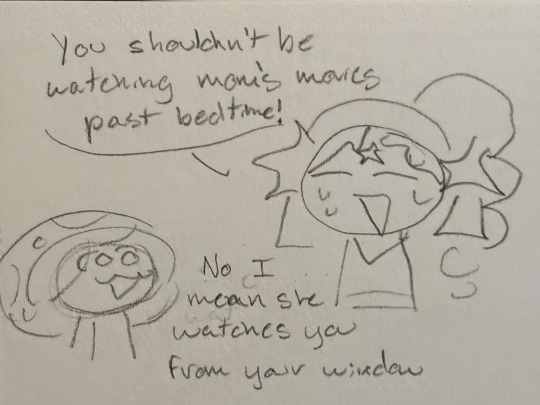 You shouldn't be
watching mom's movies
past bedtime!
No I
mean she
watches ya
from your window